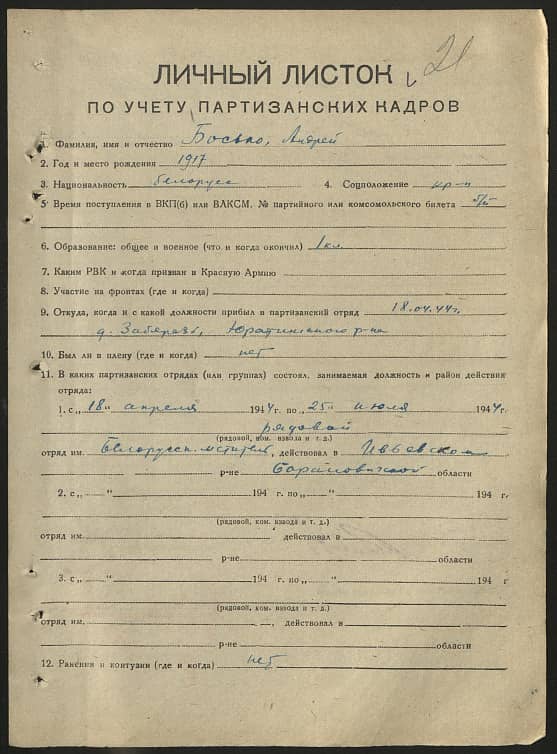 21
ЛИЧНЫЙ ЛИСТОК
ПО УЧЕТУ ПАРТИЗАНСКИХ КАДРОВ
1. Фамилия, имя и отчество Босько, Андрей
2. Год и место рождения 1917
3. Национальность белорусс 4. Соцположение кр-н
5 Время поступления в ВКП(б) или ВЛКСМ, № партийного или комсомольского билета б/п
6. Образование: общее и военное (что и когда окончил) 1 кл.
7. Каким РВК и когда призван в Красную Армию
8. Участие на фронтах (где и когда)
9. Откуда, когда и с какой должности прибыл в партизанский отряд 18.04.44г.
д. Заберезь, Юратишского р-на
10. Был ли в плену (где и когда) нет
11. В каких партизанских отрядах (или группах) состоял, занимаемая должность и район действия
отряда:
1. с „18" апреля 1944 г. по „25" июля 1944 г.
рядовой
(рядовой, ком. взвода и т. д.)
отряд им. Белорусск. мститель, действовал в Ивьевском
р-не Барановичской области
2. с „ — " 194 г. по „ — " 194 г.
(рядовой, ком. взвода и т. д.)
отряд им. действовал в
р-не области
3. с „ — " 194 г. по „ — " 194 г
(рядовой, ком. взвода и т. д.)
отряд им. , действовал в
р-не области
12. Ранения и контузии (где и когда) нет